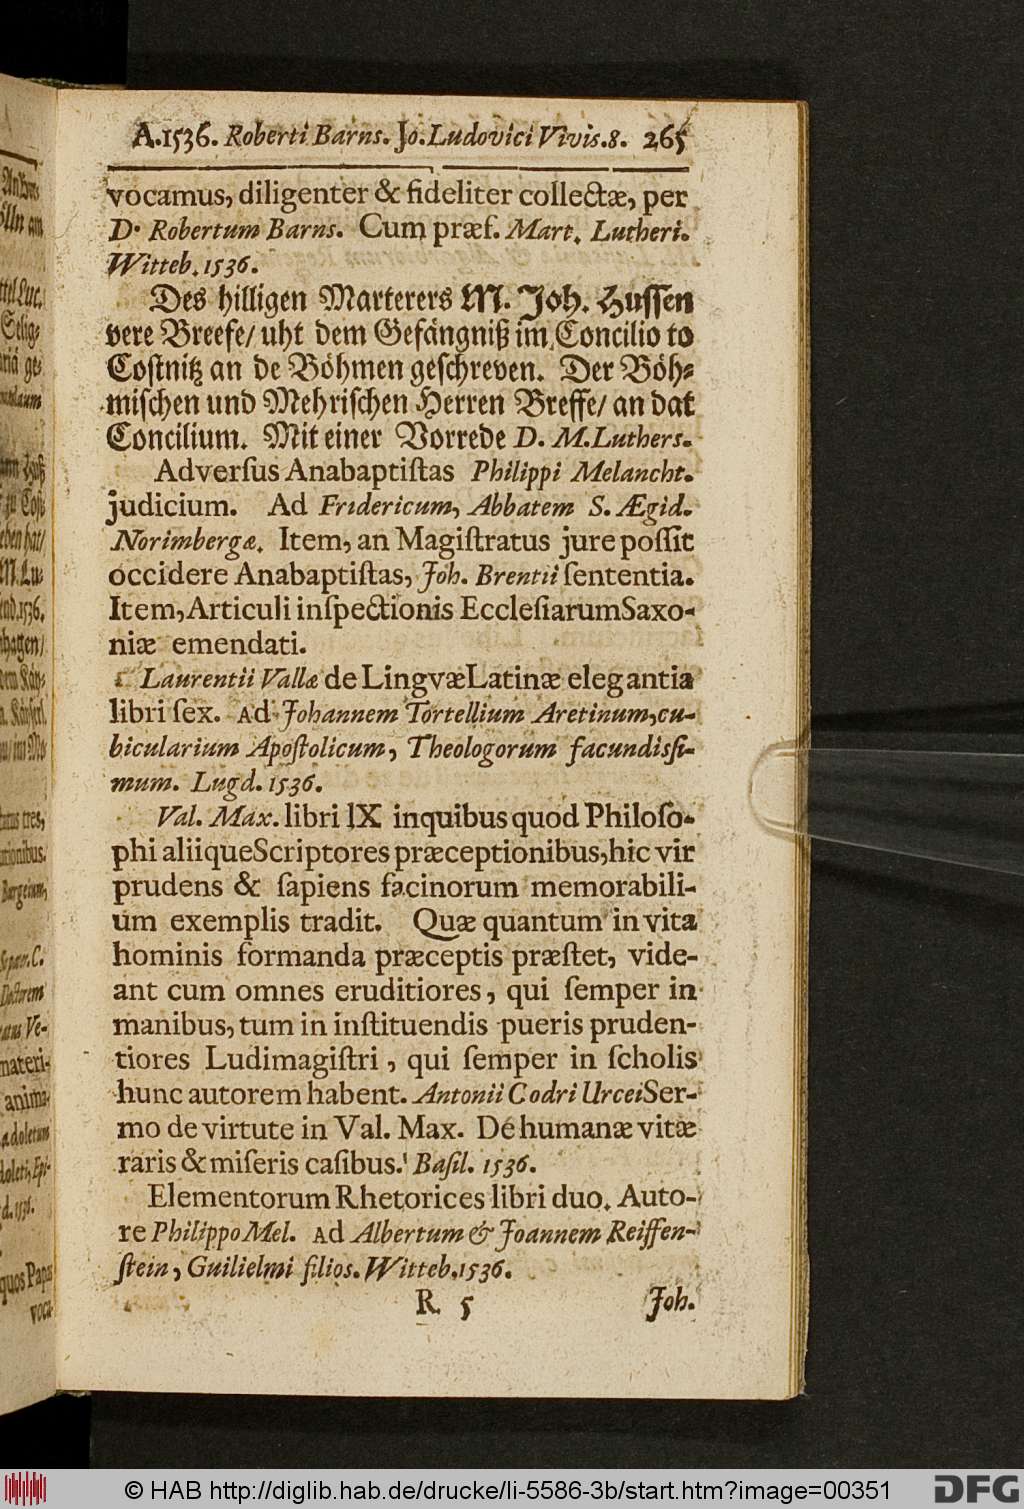 A.1536. Roberti Barns. Jo. Ludovici Vivis. 8. 265
vocamus, diligenter & fideliter collectæ, per
D. Robertum Barns. Cum præf. Mart. Lutheri.
Witteb. 1536.
Des hilligen Marterers M. Joh. Hussen
vere Breefe/ uht dem Gefängniß im Concilio to
Costnitz an de Böhmen geschreven. Der Böh-
mischen und Mehrischen Herren Breffe/ an dat
Concilium. Mit einer Vorrede D. M. Luthers.
Adversus Anabaptistas Philippi Melancht.
judicium. Ad Fridericum, Abbatem S. Ægid.
Norimbergæ. Item, an Magistratus jure possit
occidere Anabaptistas, Joh. Brentii sententia.
Item, Articuli inspectionis Ecclesiarum Saxo-
niæ emendati.
Laurentii Vallæ de Lingvæ Latinæ elegantia
libri sex. Ad Johannem Tortellium Aretinum, cu-
bicularium Apostolicum, Theologorum facundissi-
mum. Lugd. 1536.
Val. Max. libri IX inquibus quod Philoso-
phi aliique Scriptores præceptionibus, hic vir
prudens & sapiens facinorum memorabili-
um exemplis tradit. Quæ quantum in vita
hominis formanda præceptis præstet, vide-
ant cum omnes eruditiores, qui semper in
manibus, tum in instituendis pueris pruden-
tiores Ludimagistri, qui semper in scholis
hunc autorem habent. Antonii Codri Urcei Ser-
mo de virtute in Val. Max. De humanæ vitæ
raris & miseris casibus. Basil. 1536.
Elementorum Rhetorices libri duo. Auto-
re Philippo Mel. Ad Albertum & Joannem Reiffen-
stein, Guilielmi filios. Witteb. 1536.
R 5 Joh.
© HAB http://diglib.hab.de/drucke/li-5586-3b/start.htm?image=00351
DFG